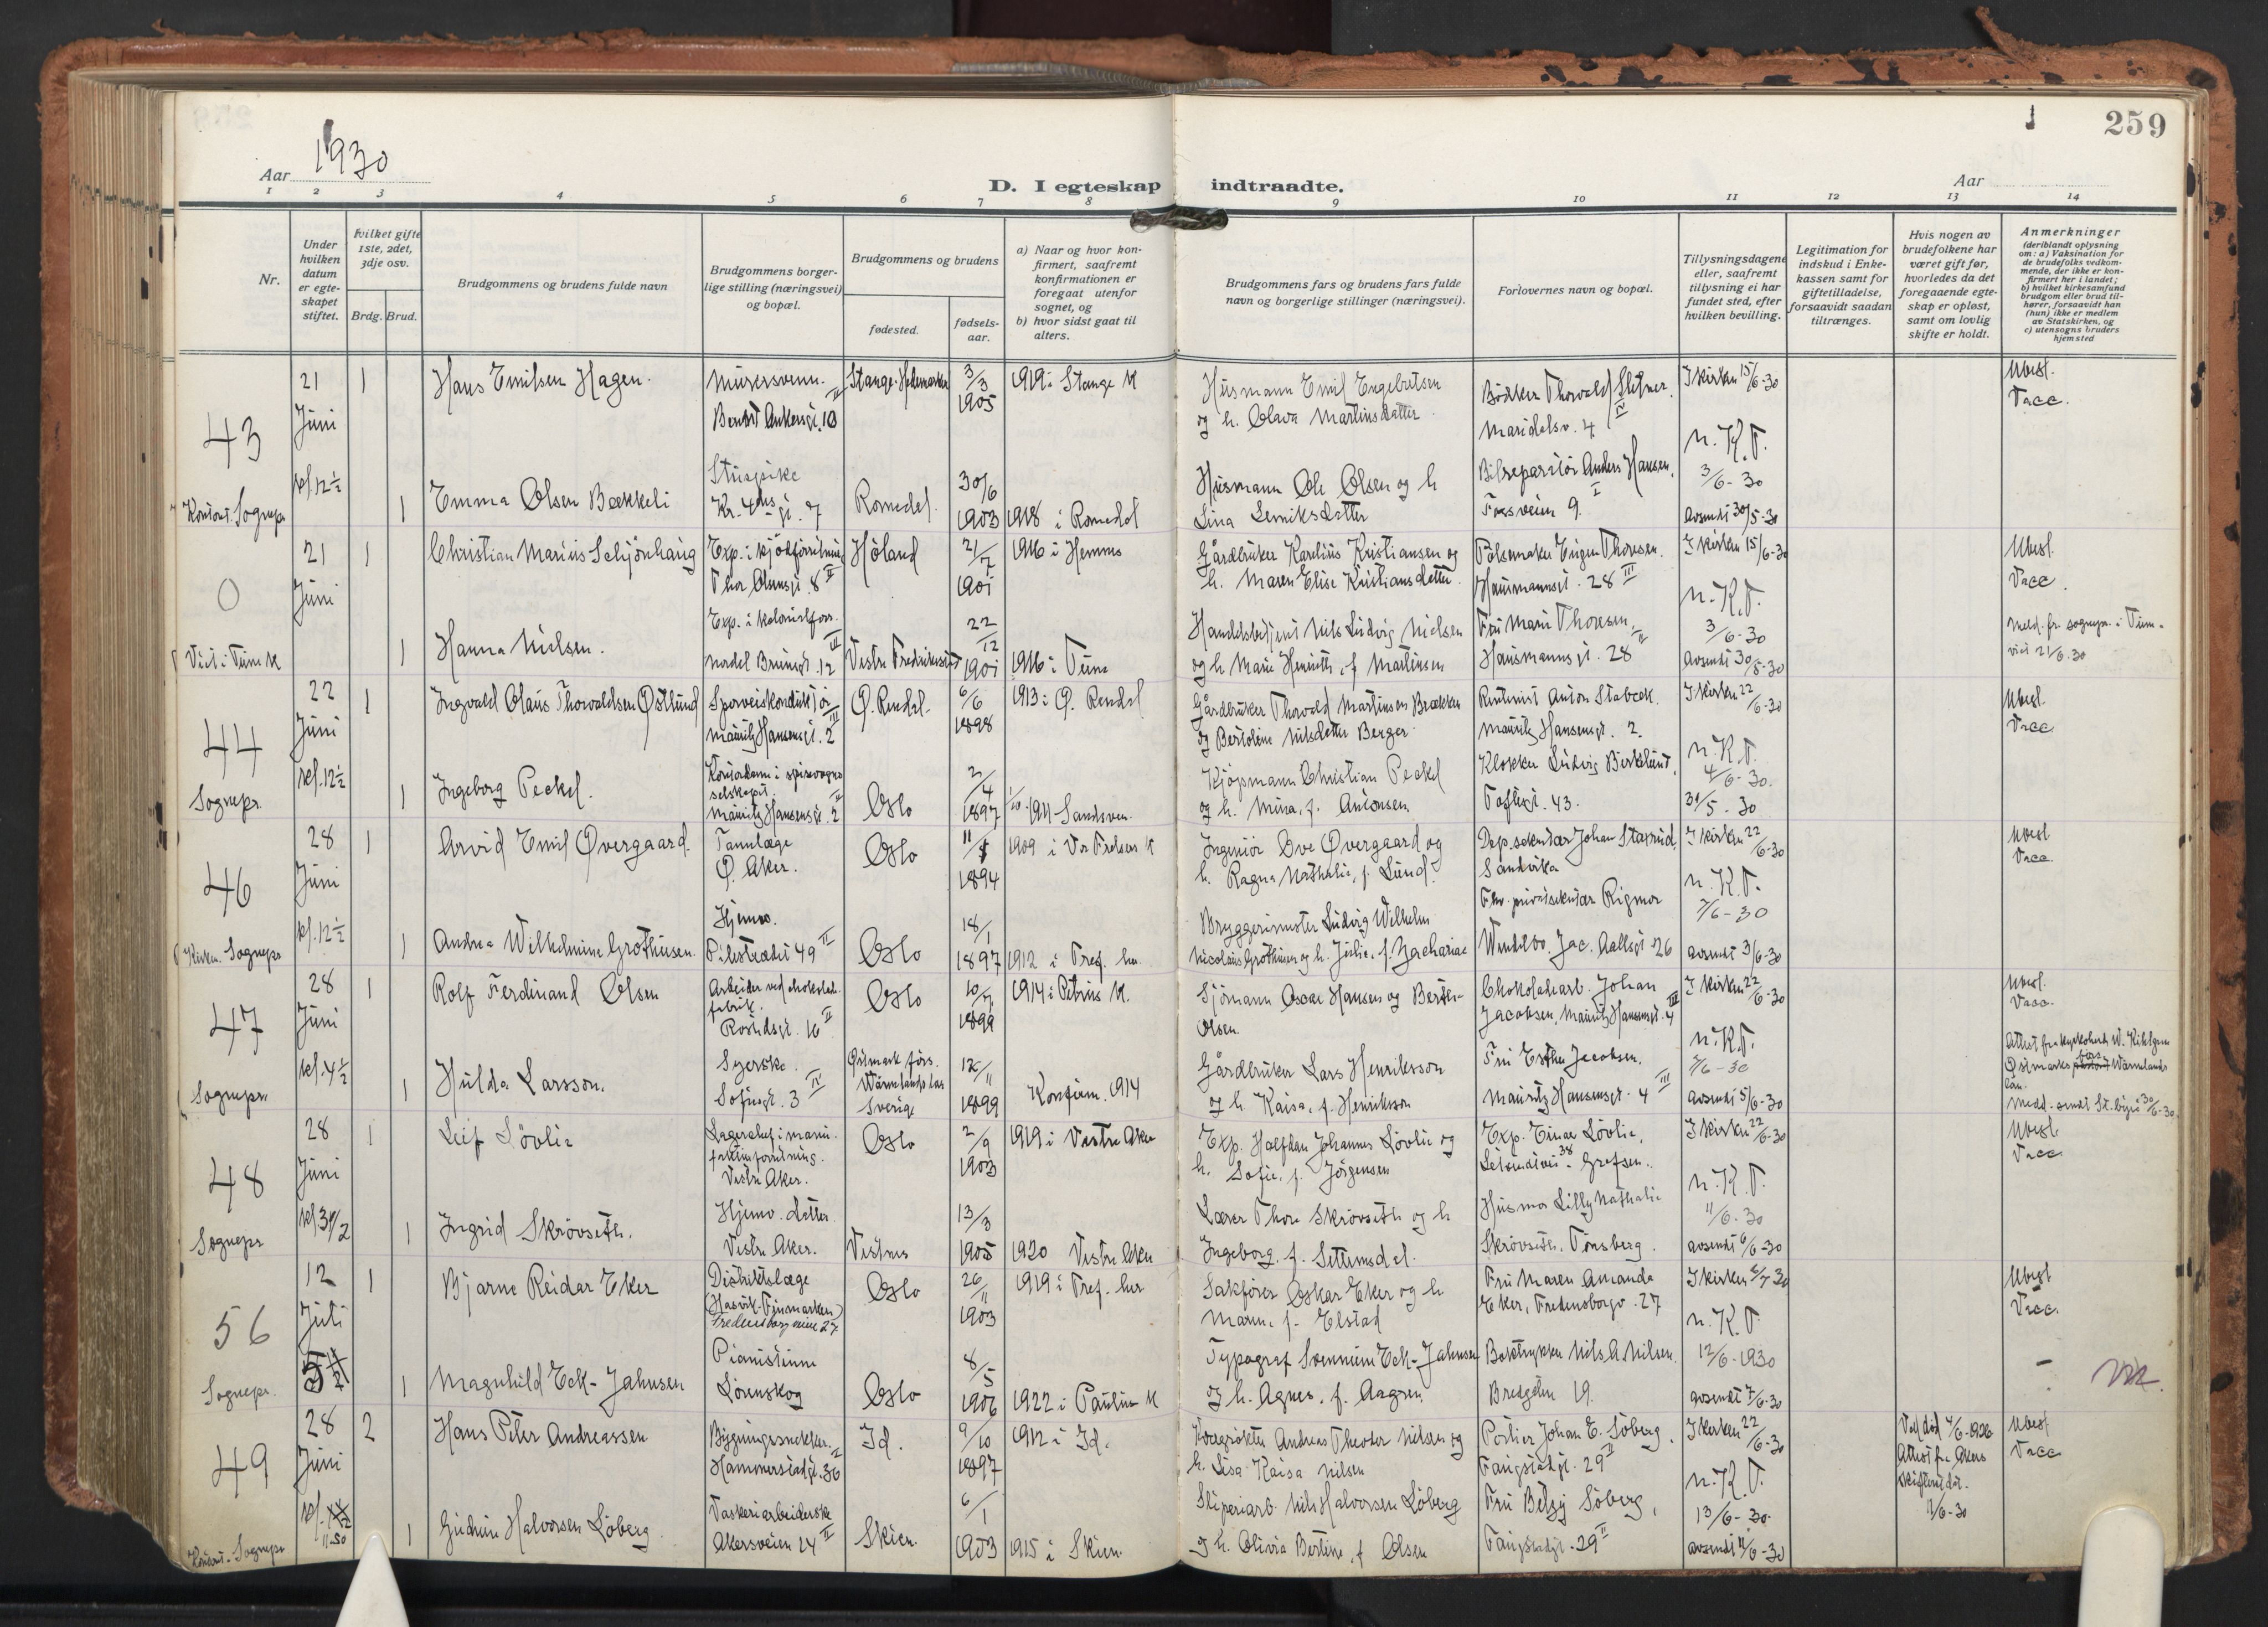 259
Aar 1930
D. I egteskap indtraadte.
Aar
1 2 3 4 5 6 7 8 9 10 11 12 13 14
Nr.
Under hvilken datum er egteskapet stiftet.
Hvilket gifte 1ste, 2det, 3dje osv.
Brdg. Brud.
Brudgommens og brudens fulde navn
Brudgommens borgerlige stilling (næringsvei) og bopæl.
Brudgommens og brudens
fødested.
fødselsaar.
a) Naar og hvor konfirmert, saafremt konfirmationen er foregaat utenfor sognet, og
b) hvor sidst gaat til alters.
Brudgommens fars og brudens fars fulde navn og borgerlige stillinger (næringsvei).
Forlovernes navn og bopæl.
Tillysningsdagene eller, saafremt tillysning ei har fundet sted, efter hvilken bevilling.
Legitimation for indskud i Enkekassen samt for giftetilladelse, forsaavidt saadan tiltrænges.
Hvis nogen av brudefolkene har været gift før, hvorledes da det foregaaende egteskap er opløst, samt om lovlig skifte er holdt.
Anmerkninger (deriblandt oplysning om: a) Vaksination for de brudefolks vedkommende, der ikke er konfirmert her i landet; b) hvilket kirkesamfund brudgom eller brud tilhører, forsaavidt han (hun) ikke er medlem av Statskirken, og c) utensogns bruders hjemsted
43
21 Juni kl. 12½
1 Hans Emilsen Hagen.
Murersvenn.
Stange. Hedemarken
3/3 1905
1919 i Stange K
Husmann Emil Engebretsen
og h. Olava Martinsdatter
Bødker Thorvald Sletner,
Maridalsv. 4 IV
I kirken 15/6-30
n. K. F.
3/6-30
avsendt 30/5-30
Ubesl.
Vacc.
Kontoret. Sognepr
1 Emma Olsen Bækkeli
Stuepike
Kr. 4des gt. 7
Romedal.
30/6 1903
1918 i Romedal
Husmann Ole Olsen og h
Lina
Bilreparatør Anders Hansen,
Fossveien 9. I
0
21 Juni
1 Christian Marius Schjønhaug
Thor Olsensgt. 8 II
Høland
21/7 1901
1916 i Hemnes
Gårdbruker Karelius Kristiansen og
h. Maren Elise Kristiansdatter.
Pølsemaker Eugen Thoresen.
Hausmannsgt. 28 III
I kirken 15/6-30
n. K. F.
3/6-30
avsendt 30/5-30
Ubesl.
Vacc.
1 Hanna Nielsen.
Exp. i kolonialforr.
Nordal Brunsgt. 12 III
Vestre Fredrikstad
22/12 1901
Handelsbetjent Nils Ludvig Nielsen
og h. Marie Henriette, f Martinsen
Fru Marie Thoresen,
Hausmannsgt. 28 III
44
22 Juni kl. 12½
Sognepr.
1 Ingvald Olaus Thorvaldsen Østlund
Sporveiskonduktør
Mauritz Hansensgt. 2 III
Ø. Rendal.
6/6 1898
1913 i Ø. Rendal
Gårdbruker Thorvald Martinsen Brækken
og Bertoline Nilsdatter Berger
Rentenist Anton Stabæk.
Mauritz Hansensgt. 2.
I kirken 22/6-30
n. K. F.
4/6-30.
31/5-30
Ubesl.
Vacc.
1 Ingeborg Peckel.
Mauritz Hansensgt. 2 III
Oslo
2/4 1897
1911 Sandsvær.
Kjøpmann Christian Peckel
og h. Mina, f. Antonsen
Klokker Ludvig Berklund,
Toftesgt. 43.
46
28 Juni kl. 12½
Kirken. Sognepr
1 Arvid Emil Øvergaard.
Tannlæge
Ø. Aker.
Oslo
1894
1909 i Vor Frelsers K
Ingeniør Ove Øvergaard og
h. Ragna Nathalie, f. Lund.
Dep.sekretær Johan Stamrud,
Sandvika
I kirken 22/6-30
n. K. F.
7/6-30
avsendt 3/6-30
Ubesl
Vacc.
1 Andrea Wilhelmine Grothusen.
Hjemv.
Pilestrædet 49 II
Oslo
18/1 1897
1912 i Tref. her
Bryggerimester Ludvig Wilhelm
Nicolaus Grothusen og h. Julie, f. Zachariae
Fhv. privatsekretær Rigmor
Jac. Aallsgt 26
47
28 Juni kl. 4½
Sognepr.
1 Rolf Ferdinand Olsen
Arbeider ved chokolade-
fabrik.
II
Oslo
10/7 1899
1914 i Petrus K.
Sjømann Oscar Hansen og Berthe
Olsen.
Chokoladearb. Johan
Jacobsen, Mauritz Hansensgt. 4 III
I kirken 22/6-30
n. K. F.
7/6-30
avsendt 5/6-30
Ubesl.
Vacc.
1 Hulda Larsson.
Syerske.
Sofiesgt. 3 IV
Østmark förs.
Värmlands län
Sverige
12/11 1899
Konfirm. 1914
Gårdbruker Lars Henriksson
og h. Kaisa, f. Henriksson
Fru Esther Jacobsen,
Mauritz Hansensgt. 4 III
48
28 Juni kl 3½
Sognepr
1 Leif Løvlie
Lagerchef i manu-
fakturforretning.
Vestre Aker.
Oslo
2/9 1903
1919 i Vestre Aker
Exp. Halfdan Johannes Løvlie og
h. Sofie, f. Jørgensen
Exp. Einar Løvlie,
Grefsen.
I kirken 22/6-30
n. K. F.
11/6-30
avsendt 6/6-30
Ubesl
Vacc.
1 Ingrid Skrøvseth.
Hjemv. datter
Vestre Aker.
Vestnes
13/3 1905
1920 Vestre Aker
Lærer Thore Skrøvseth og h
Ingeborg. f. Settemsdal.
Husmor Lilly Nathalie
Skrøvseth. Tønsberg.
56
12 Juli
Sognepr.
1 Bjarne Reidar Eker
Distriktslæge
(Hasvik-Finmarken)
Fredensborgveien 27
Oslo
26/11 1903
1919 i Tref. her
Sakfører Oskar Eker og h
Maren. f. Elstad
Fru Maren Amanda
Eker, Fredensborgv. 27
n. K. F.
12/6-1930
avsendt 7/6-30
Ubesl
Vacc.
1 Magnhild Eck-Jahnsen
Pianistinne
Lørenskog
Oslo
8/5 1906
1922 i Paulus K
Typograf Svennum Eck-Jahnsen
og h. Agnes, f. Aagren
Boktrykker Nils A. Nilsen.
19.
49
28 Juni
11-50
Kontoret. Sognepr
2 Hans Peter Andreassen
Bygningssnekker.
Hammerstadgt. 36 II
Id.
9/10 1897
1912 i Id.
Andreas Theodor Nilsen og
h. Lisa Kaisa Nilsen
Portier Johan E. Søberg.
29 II
I kirken 22/6-30
n. K. F.
13/6-30
avsendt 11/6-30
Attest fra Akers
Ubesl
Vacc
1 Gudrun Halvorsen Løberg.
Vaskeriarbeiderske
Akersveien 24 II
Skien.
6/1 1903
1915 i Skien.
Sliperiarb. Nils Halvorsen Løberg
og h. Olivia Bertine, f Olsen
Fru Betzy Søberg,
29 II